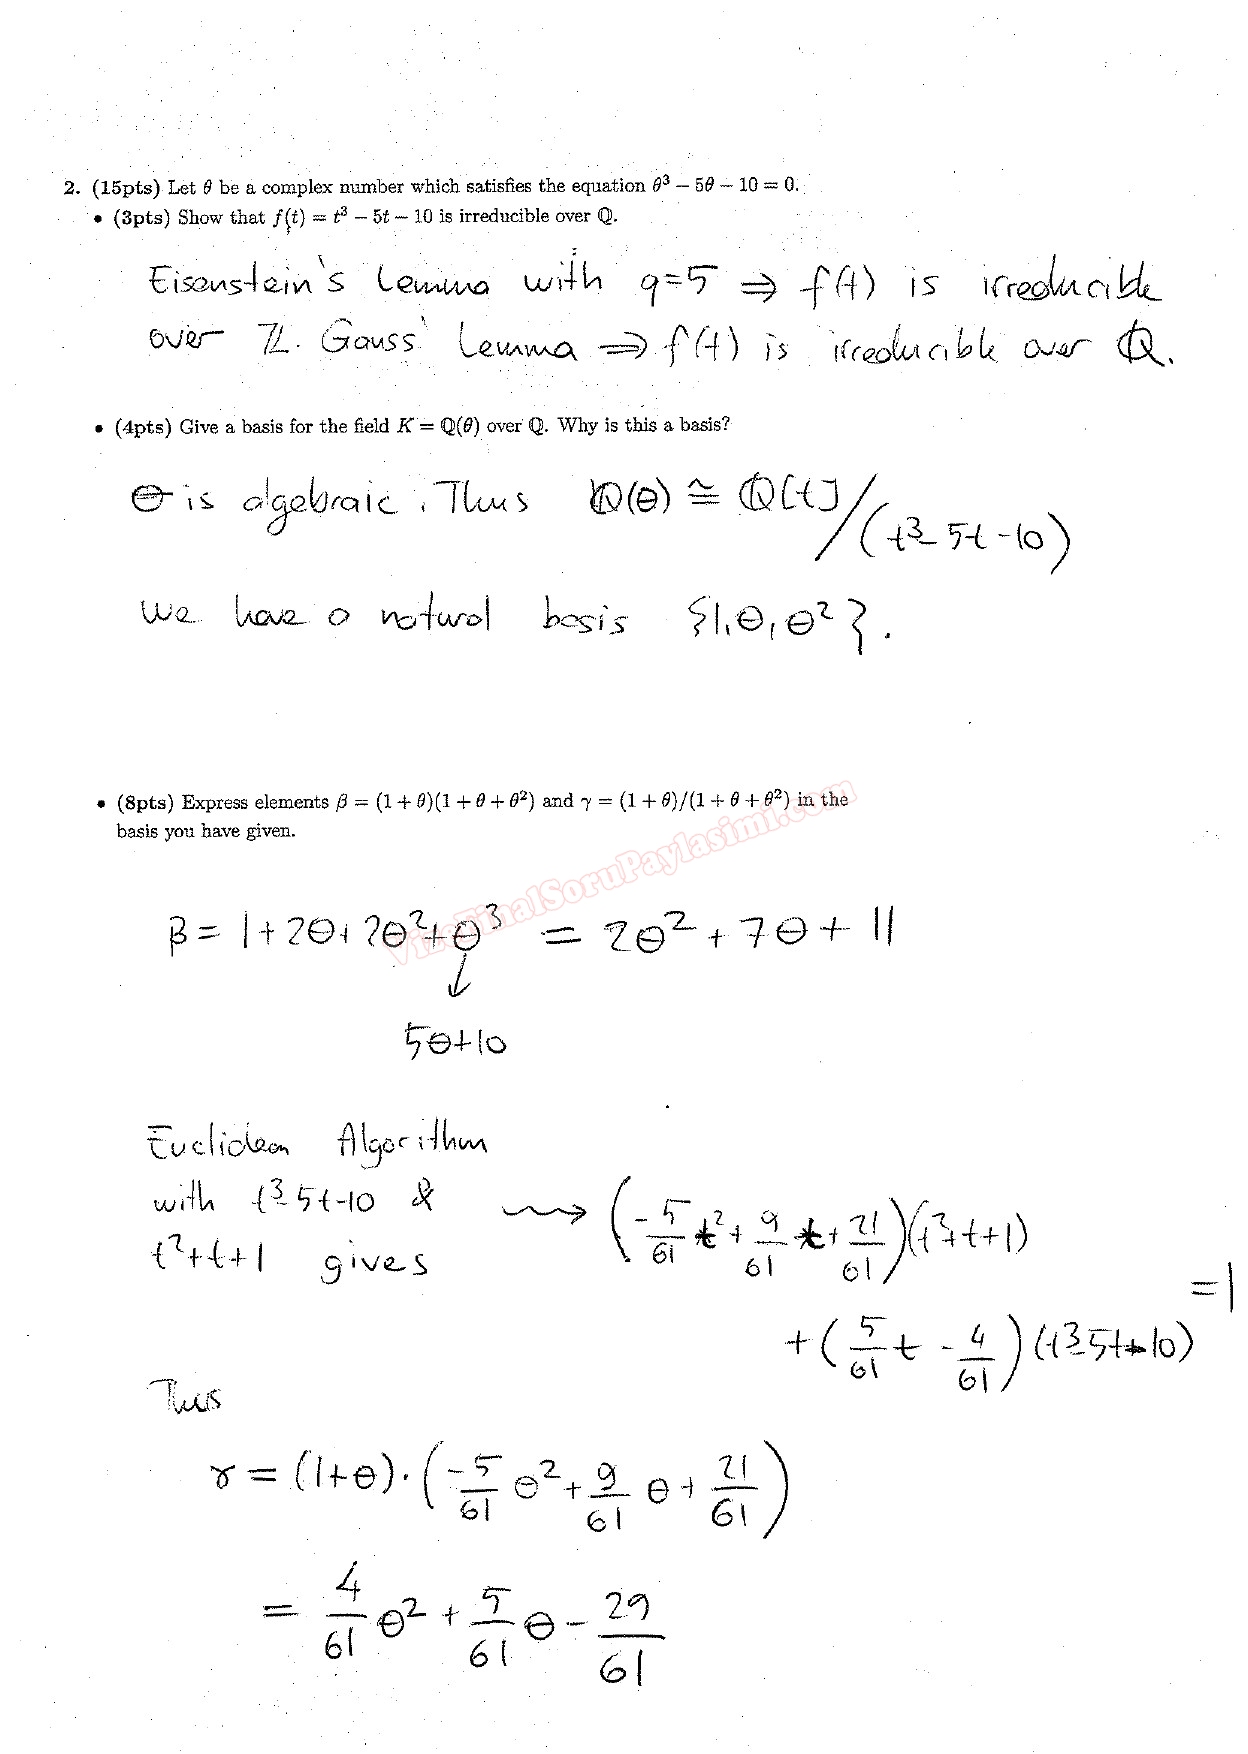 2. (15pts) Let θ be a complex number which satisfies the equation θ³ − 5θ − 10 = 0.
• (3pts) Show that f(t) = t³ − 5t − 10 is irreducible over ℚ.
Eisenstein's Lemma with q=5 ⇒ f(t) is irreducible
over ℤ. Gauss' Lemma ⇒ f(t) is irreducible over ℚ.
• (4pts) Give a basis for the field K = ℚ(θ) over ℚ. Why is this a basis?
θ is algebraic. Thus ℚ(θ) ≅ ℚ[t]/(t³-5t-10)
we have a natural basis {1,θ,θ²}.
• (8pts) Express elements β = (1 + θ)(1 + θ + θ²) and γ = (1 + θ)/(1 + θ + θ²) in the
basis you have given.
VizeFinalSoruPaylasimi.com
β = 1+2θ+2θ²+θ³ = 2θ²+7θ+11
↓
5θ+10
Euclidean Algorithm
with t³-5t-10 &
t²+t+1 gives
⇝ (-5/61 t² + 9/61 t + 21/61)(t²+t+1)
+ (5/61 t - 4/61)(t³-5t-10) = 1
Thus
γ = (1+θ)·(-5/61 θ² + 9/61 θ + 21/61)
= 4/61 θ² + 5/61 θ - 29/61